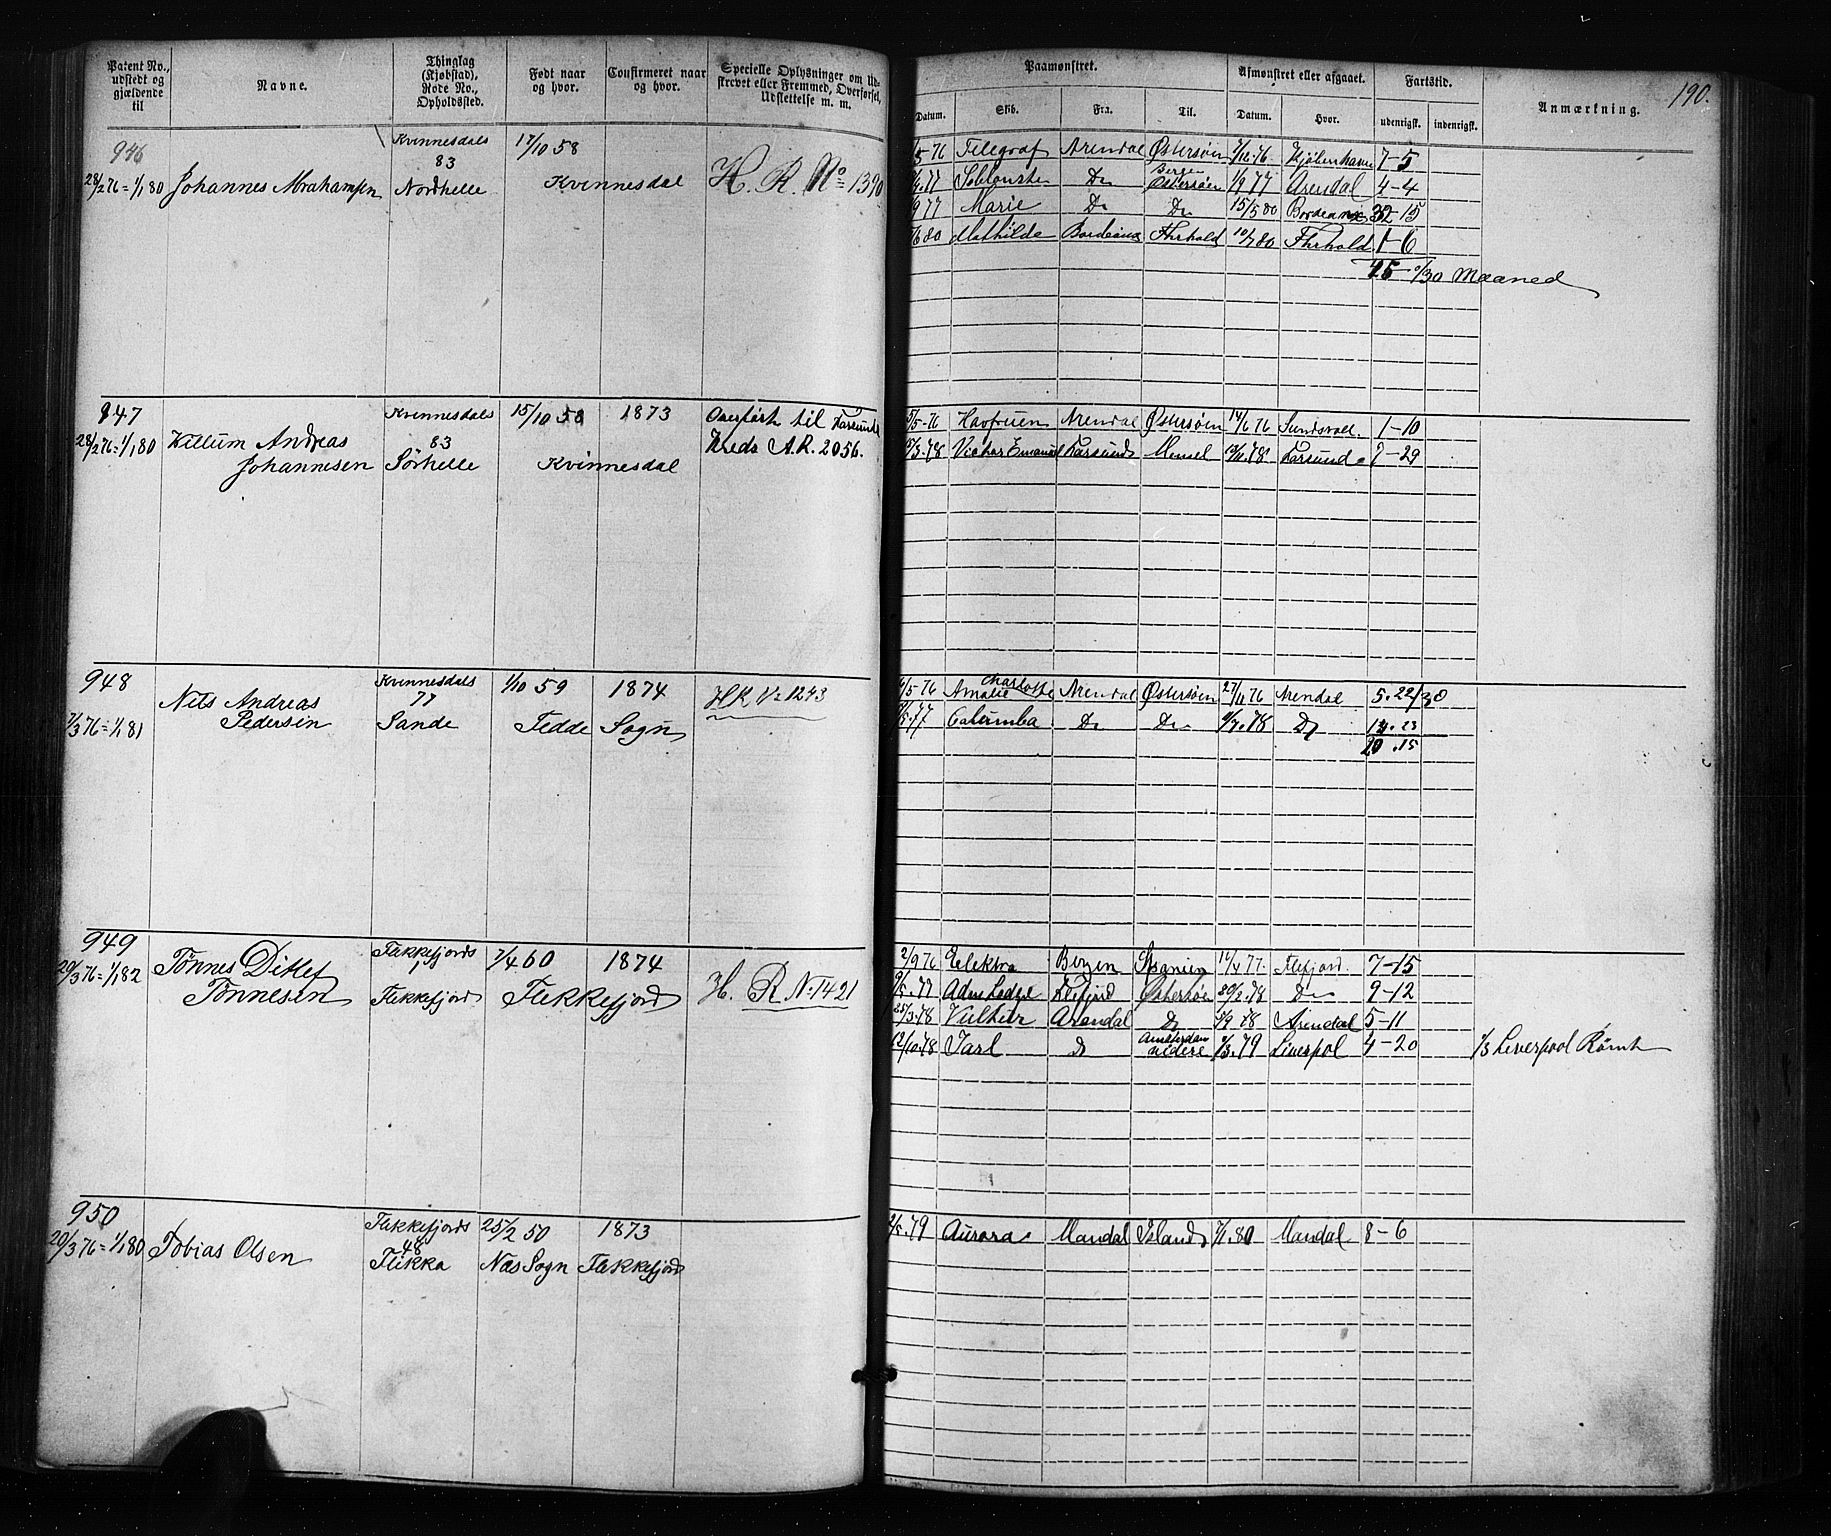 190.
Patent No., udstedt og gjældende til
Navne.
Thinglag (Kjøbstad), Rode No., Opholdssted.
Født naar og hvor.
Confirmeret naar og hvor.
Specielle Oplysninger om Udskrevet eller Fremmed, Overførsel, Udslettelse m. m.
Paamønstret.
Afmønstret eller afgaaet.
Fartstid.
Anmærkning.
Datum. Skib. Fra. Til. Datum. Hvor. udenrigsk. indenrigsk.
946
28/2 76 = 1/1 80
Johannes Abrahamsen
Kvinnesdals
83
Nordhelle
17/10 58
Kvinnesdal
H. R. No 1390
5 76 Telegraf Arendal Østersøen 76 Kjøbenhavn 7-5
77 Do Østersøen 1/9 77 Arendal 4-4
9 77 Marie Do Do 15/5 80 Bordeaux 32-15
6 80 Mathilde Bordeaux 10/7 80 1-6
45 0/30 Maaned
947
28/2 76 = 1/1 80
Andreas
Johannesen
Kvinnesdals
83
Sørhelle
15/10 58
1873
Kvinnesdal
Overført til Farsunds
Kreds A.R. 2056.
5-76 Havfruen Arendal Østersøen 14/6 76 Sundsvall 1-10
3 78 Victor Emanuel Farsund 78 Farsund 7-29
948
7/3 76 = 1/1 81
Nils Andreas
Pedersen
Kvinnesdals
77
Sande
1/10 59
1874
Fedde Sogn
HR No 1243
5 76 Amalie Charlotte Arendal Østersøen 27/11 76 Arendal 5. 22/30
77 Do Do 78 Do 14. 23
20 .15
949
20/3 76 = 1/1 82
Tønnes Ditlef
Tønnesen
Flekkefjords
1
Flekkefjord
7/4 60
1874
Flekkefjord
H. R No 1421
2/9 76 Elektra Bergen Spanien 16/4 77 Flefjord 7-15
77 Flefjord Østersøen 78 Do 9-12
25/3 78 Arendal Do 78 Arendal 5-11
12/10 78 Jarl Do Amsterdam videre 1/3 79 Liverpol 4-20
1/3 Leverpool Rømt
950
20/3 76 = 1/1 80
Tobias Olsen
Flekkefjords
48
Flikka
25/2 50
Nes Sogn
1873
Flekkefjord
79 Aurora Mandal Island 80 Mandal 8-6